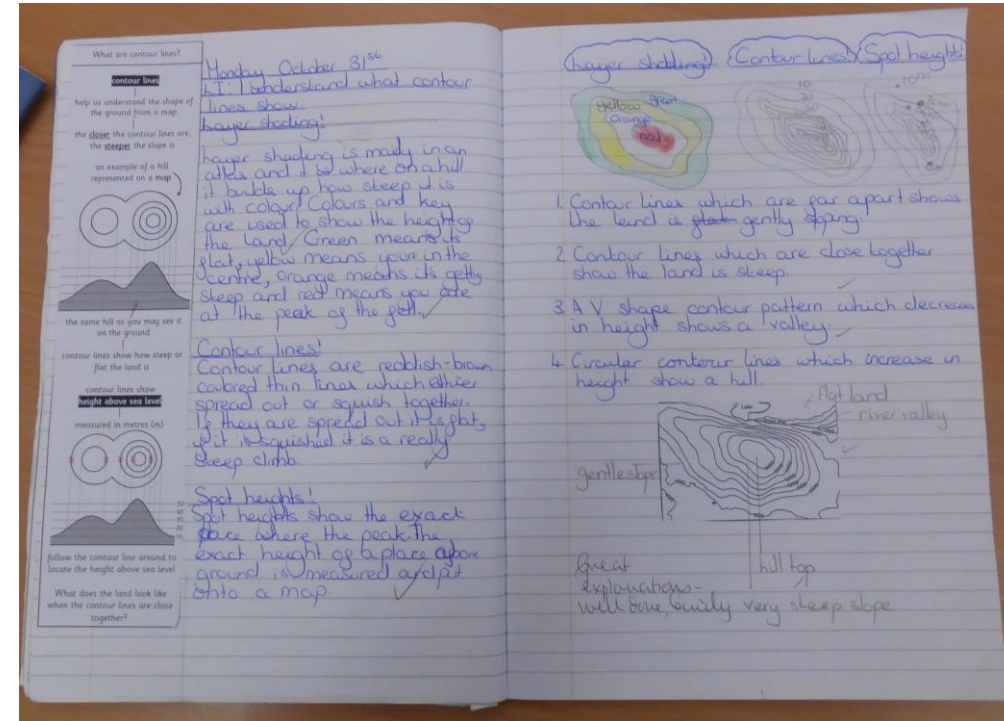 What are contour lines?
contour lines
help us understand the shape of
the ground from a map
the closer the contour lines are,
the steeper the slope is
an example of a hill
represented on a map
the same hill as you may see it
on the ground
contour lines show how steep or
flat the land is
contour lines show
height above sea level
measured in metres (m)
follow the contour line around to
locate the height above sea level
What does the land look like
when the contour lines are close
together?
Monday October 31st
LI: I understand what contour
lines show.
Layer shading!
Layer shading is mainly in an
atlas and it is where on a hill
it builds up how steep it is
with colour. Colours and key
are used to show the height of
the land. Green means its
flat, yellow means your in the
centre, orange means its getting
steep and red means you are
at the peak of the
Contour lines!
Contour lines are reddish-brown
coloured thin lines which ethier
spread out or squish together.
If they are spread out it is flat,
if it is squished it is a really
steep climb.
Spot heights!
Spot heights show the exact
place where the peak. The
exact height of a place above
ground is measured and put
onto a map.
Layer shading! Contour lines! Spot heights!
yellow green
orange
red
10
20
10m
1. Contour lines which are far apart shows
the land is gently sloping.
2. Contour lines which are close together
show the land is steep.
3. A V shape contour pattern which decreases
in height shows a valley.
4. Circular contour lines which increase in
height show a hill.
flat land
river valley
gentle slope
hill top
very steep slope
Great
explanations -
well done,